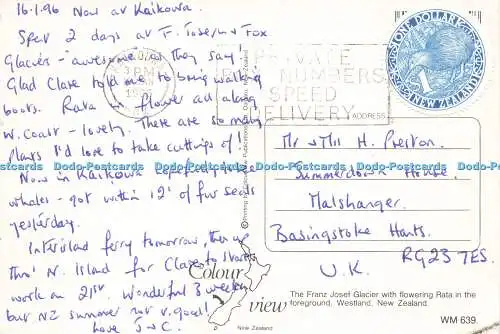 16.1.96 Now at Kaikowa.
Spet 2 days at F. Josef & Fox
Glacier - awesome as they say.
Glad Clare told me to bring walking
boots. Rata in flower all along
W. Coast - lovely. There are so many
plants I'd love to take cuttings of!
Now in Kaikowa
whales - got within 12' of fur seals
yesterday.
Interisland ferry tomorrow, then up
thro' N. Island for Clare to start
work on 21st. Wonderful 3 weeks
but NZ summer not v. good!
Love J & C.
PRIVATE
NUMBERS
SPEED
DELIVERY
ONE DOLLAR
1
NEW ZEALAND
ADDRESS
Mr & Mrs H. Preston.
Summerdown House.
Malshanger.
Basingstoke Hants.
RG23 7ES.
U.K.
Colour
view
New Zealand
The Franz Josef Glacier with flowering Rata in the
foreground, Westland, New Zealand.
WM 639
Dodo-Postcards Dodo-Postcards Dodo-Postcards Dodo-Postcards